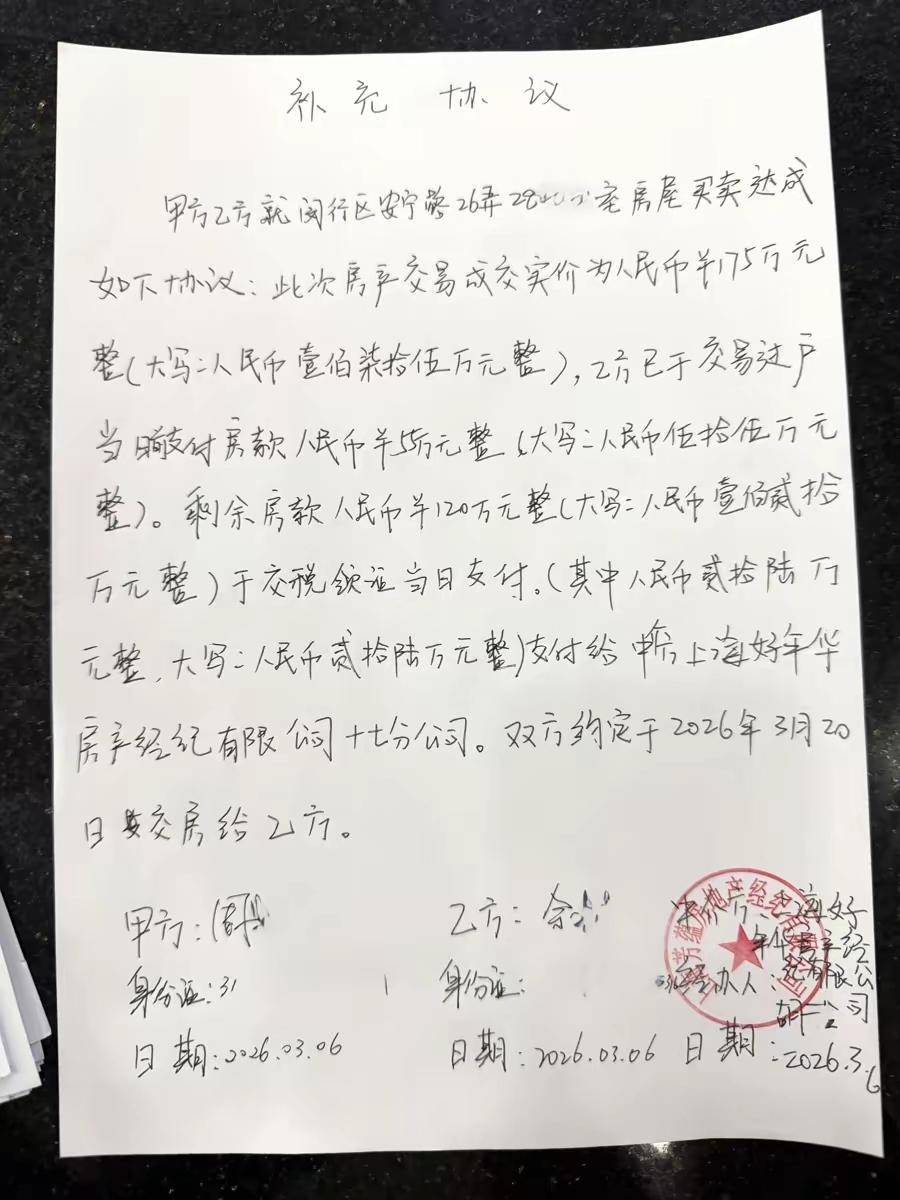 补充 协议
甲方乙方就闵行区安宁路26弄28 室房屋买卖达成
如下协议：此次房产交易成交实价为人民币¥175万元
整（大写：人民币壹佰柒拾伍万元整），乙方已于交易过户
当日支付房款人民币¥55万元整（大写：人民币伍拾伍万元
整）。剩余房款人民币¥120万元整（大写：人民币壹佰贰拾
万元整）于交税领证当日支付。（其中人民币贰拾陆万
元整，大写：人民币贰拾陆万元整）支付给中介方上海好年华
房产经纪有限公司十七分公司。双方约定于2026年3月20
日交房给乙方。
甲方：周
乙方：余
海好
年华房产经
身份证：31
身份证：
经办人：
纪有限公
司
日期：2026.03.06
日期：2026.03.06
日期：2026.3.6
房地产经纪有限公司